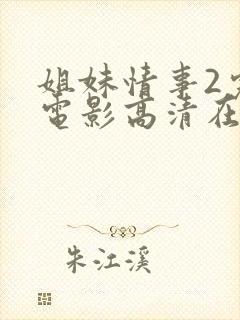 姐妹情事2
電影高清在
朱江溪